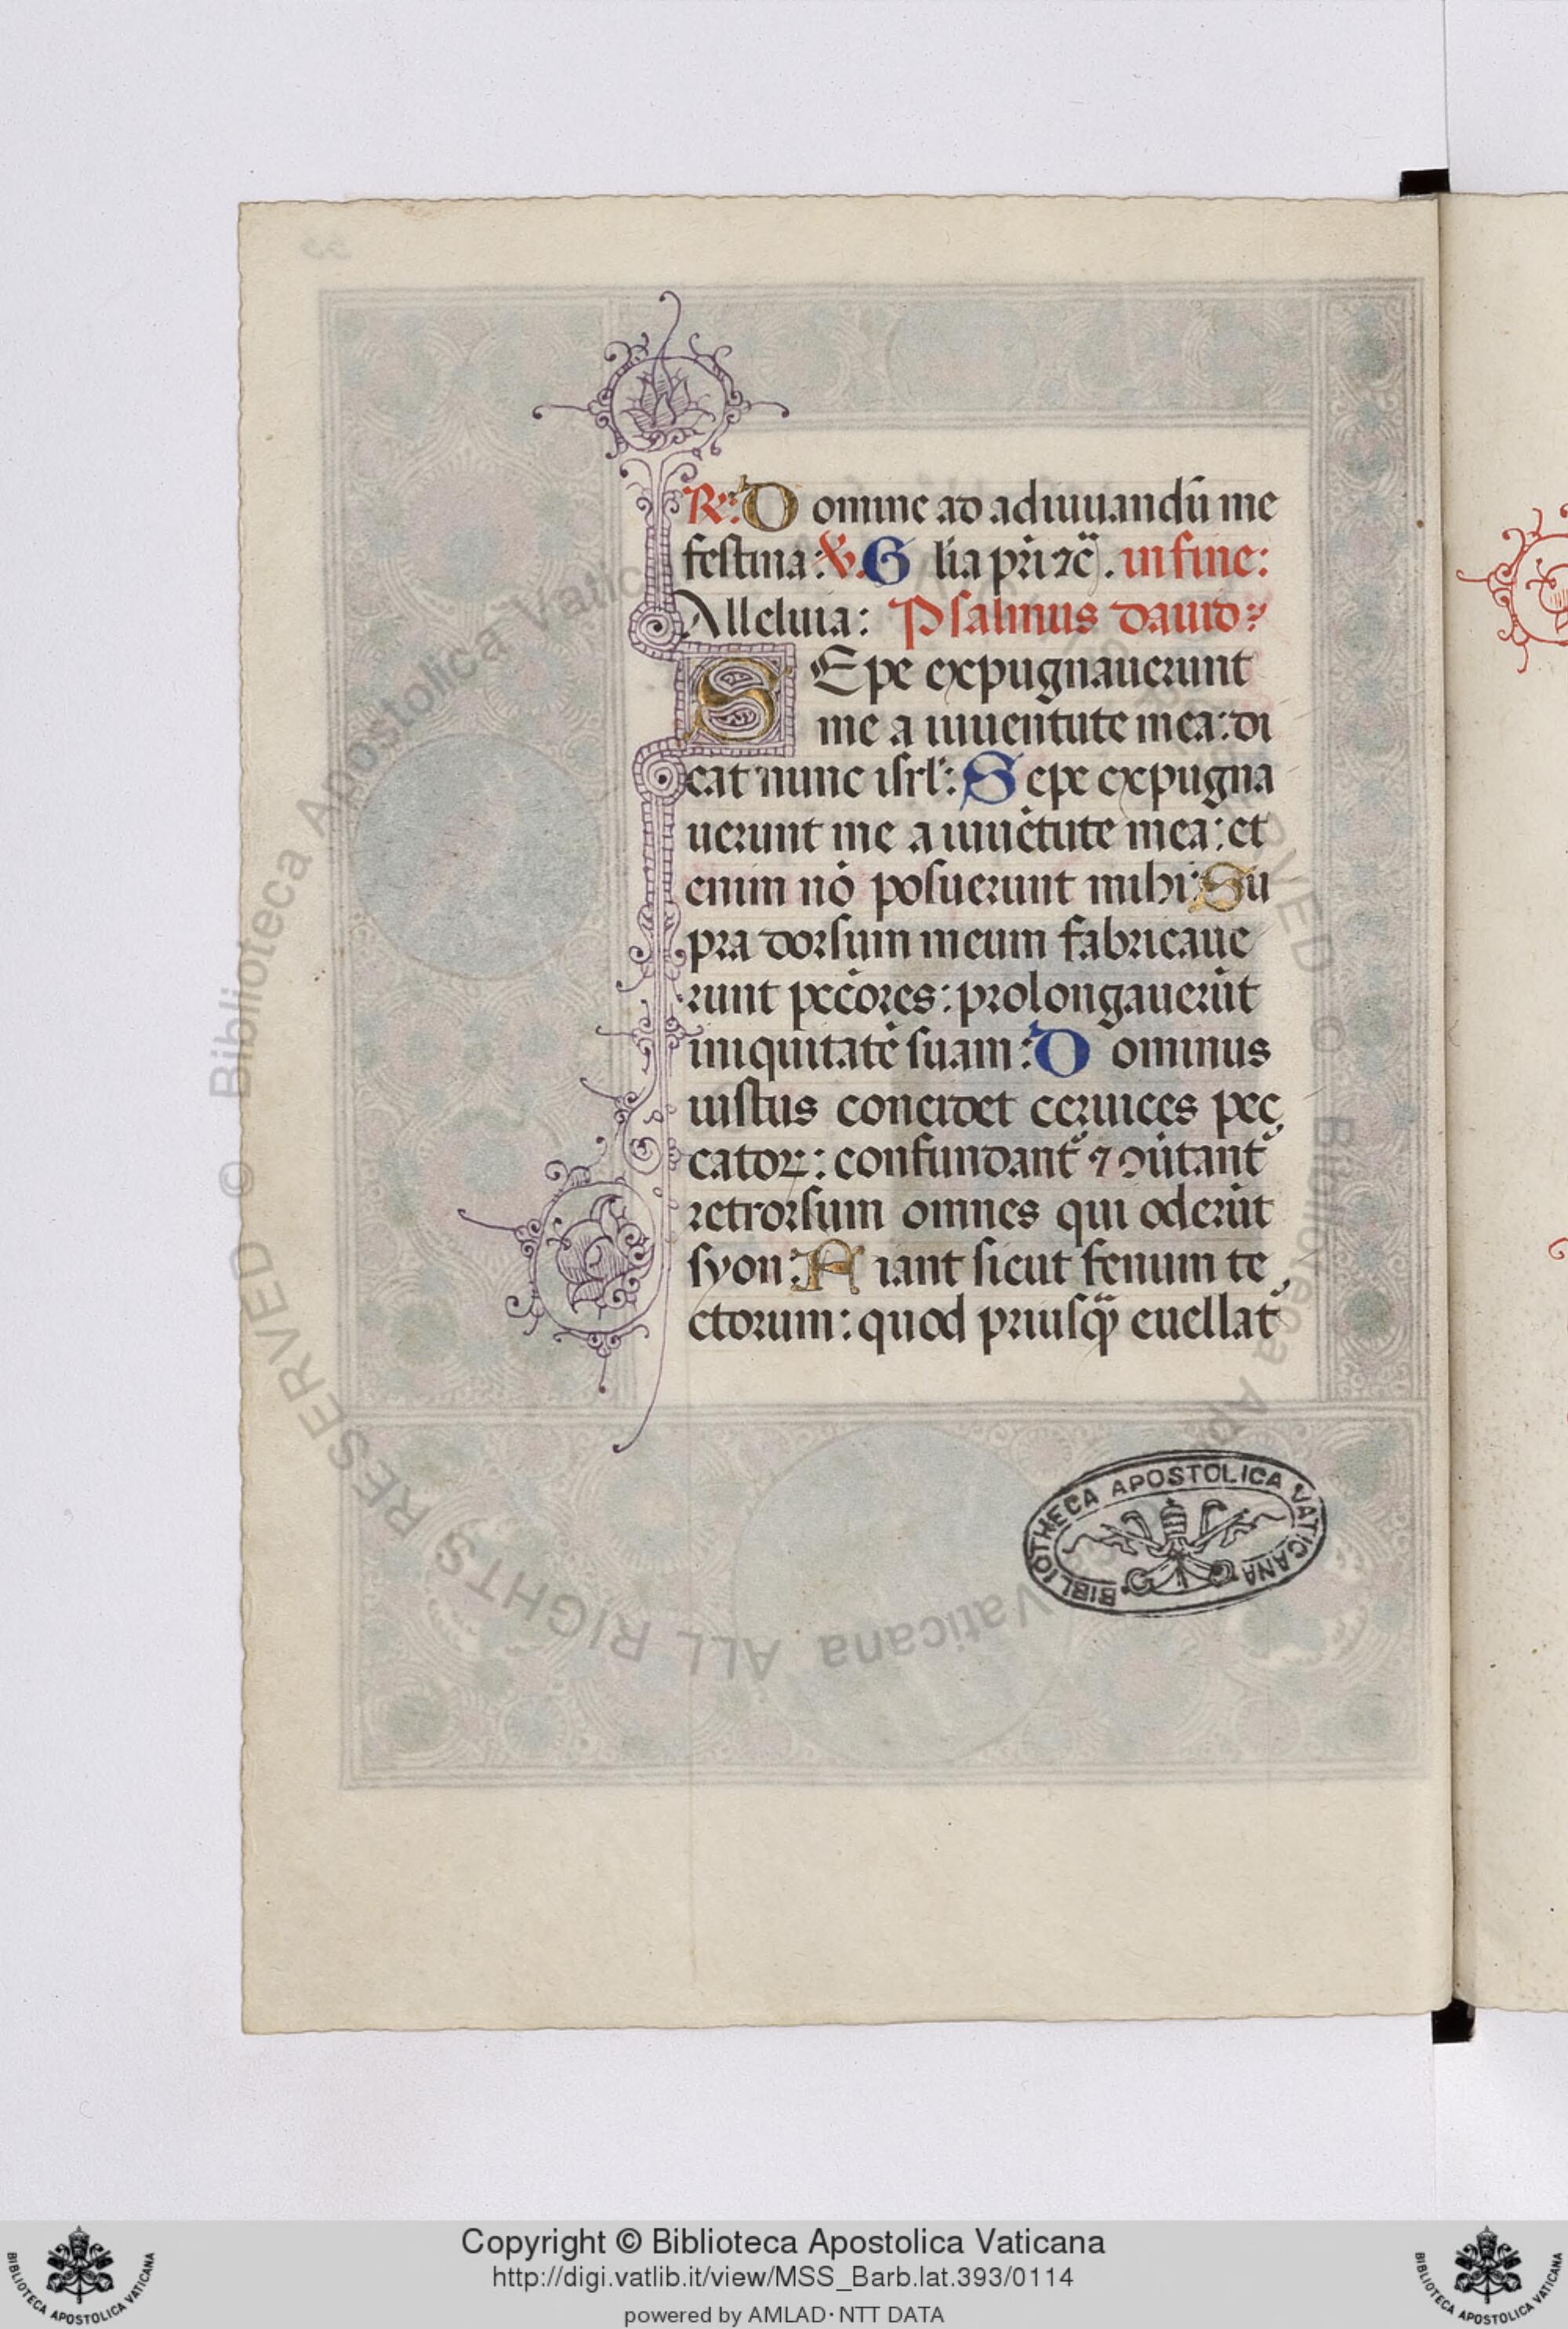 R̵. Domine ad adiuuandū me
festina: V̵. Gl̄ia pr̄i ⁊c̄. in fine:
Alleluia: Psalmus dauid:
SEpe expugnauerunt
me a iuuentute mea: di
cat nunc isrl̄: Sepe expugna
uerunt me a iuuētute mea: et
enim nō posuerunt mihi: Su
pra dorsum meum fabricaue
runt pec̄ores: prolongauerūt
iniquitatē suam: Dominus
iustus concidet ceruices pec
catoꝝ: confundant᷑ ⁊ ꝯūtant᷑
retrorsum omnes qui oderūt
syon: Fiant sicut fenum te
ctorum: quod priusq̄ euellat᷑
BIBLIOTHECA APOSTOLICA VATICANA
© Biblioteca Apostolica Vaticana ALL RIGHTS RESERVED
Copyright © Biblioteca Apostolica Vaticana
http://digi.vatlib.it/view/MSS_Barb.lat.393/0114
powered by AMLAD · NTT DATA
BIBLIOTECA APOSTOLICA VATICANA
BIBLIOTECA APOSTOLICA VATICANA